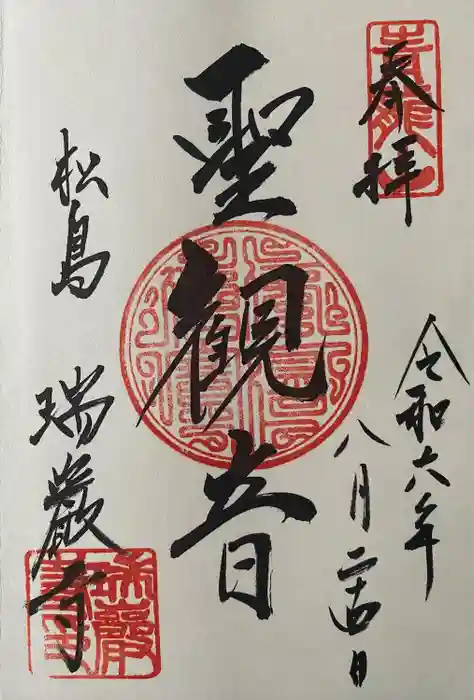 奉拝
令和六年
八月二十四日
聖観音
松島
瑞巌寺
青龍山
瑞巌